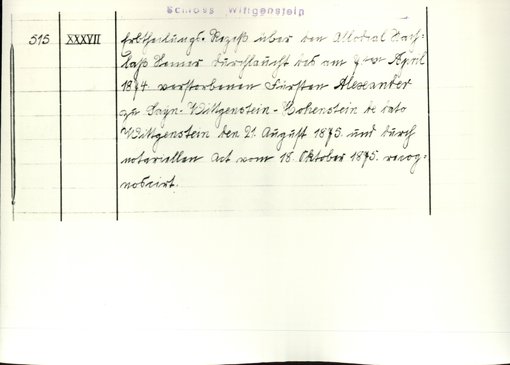 Schloss Wittgenstein
315 XXXVII Erbtheilungs-Rezeß über den Allodial Nach-
laß Seiner Durchlaucht des am 7ten April
1874 verstorbenen Fürsten Alexander
zu Sayn-Wittgenstein-Hohenstein de dato
Wittgenstein den 21. August 1875. und durch
notariellen Act vom 18. Oktober 1875. recog-
noscirt.